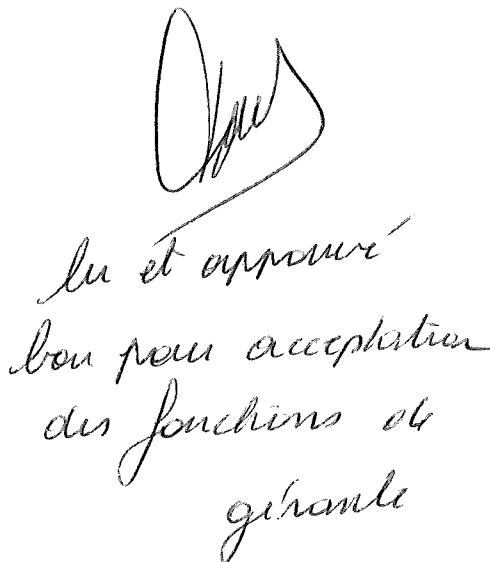 lu et approuvé
bon pour acceptation
des fonctions de
gérante